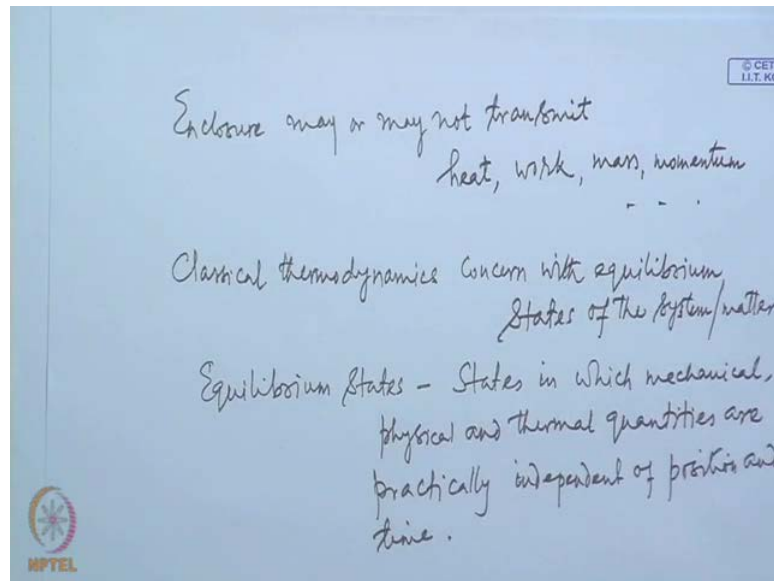 © CET
I.I.T. K
Enclosure may or may not transmit
heat, work, mass, momentum
- - .
Classical thermodynamics Concern with equilibrium
States of the System/matter
Equilibrium States - States in which mechanical,
physical and thermal quantities are
practically independent of position and
time.
NPTEL